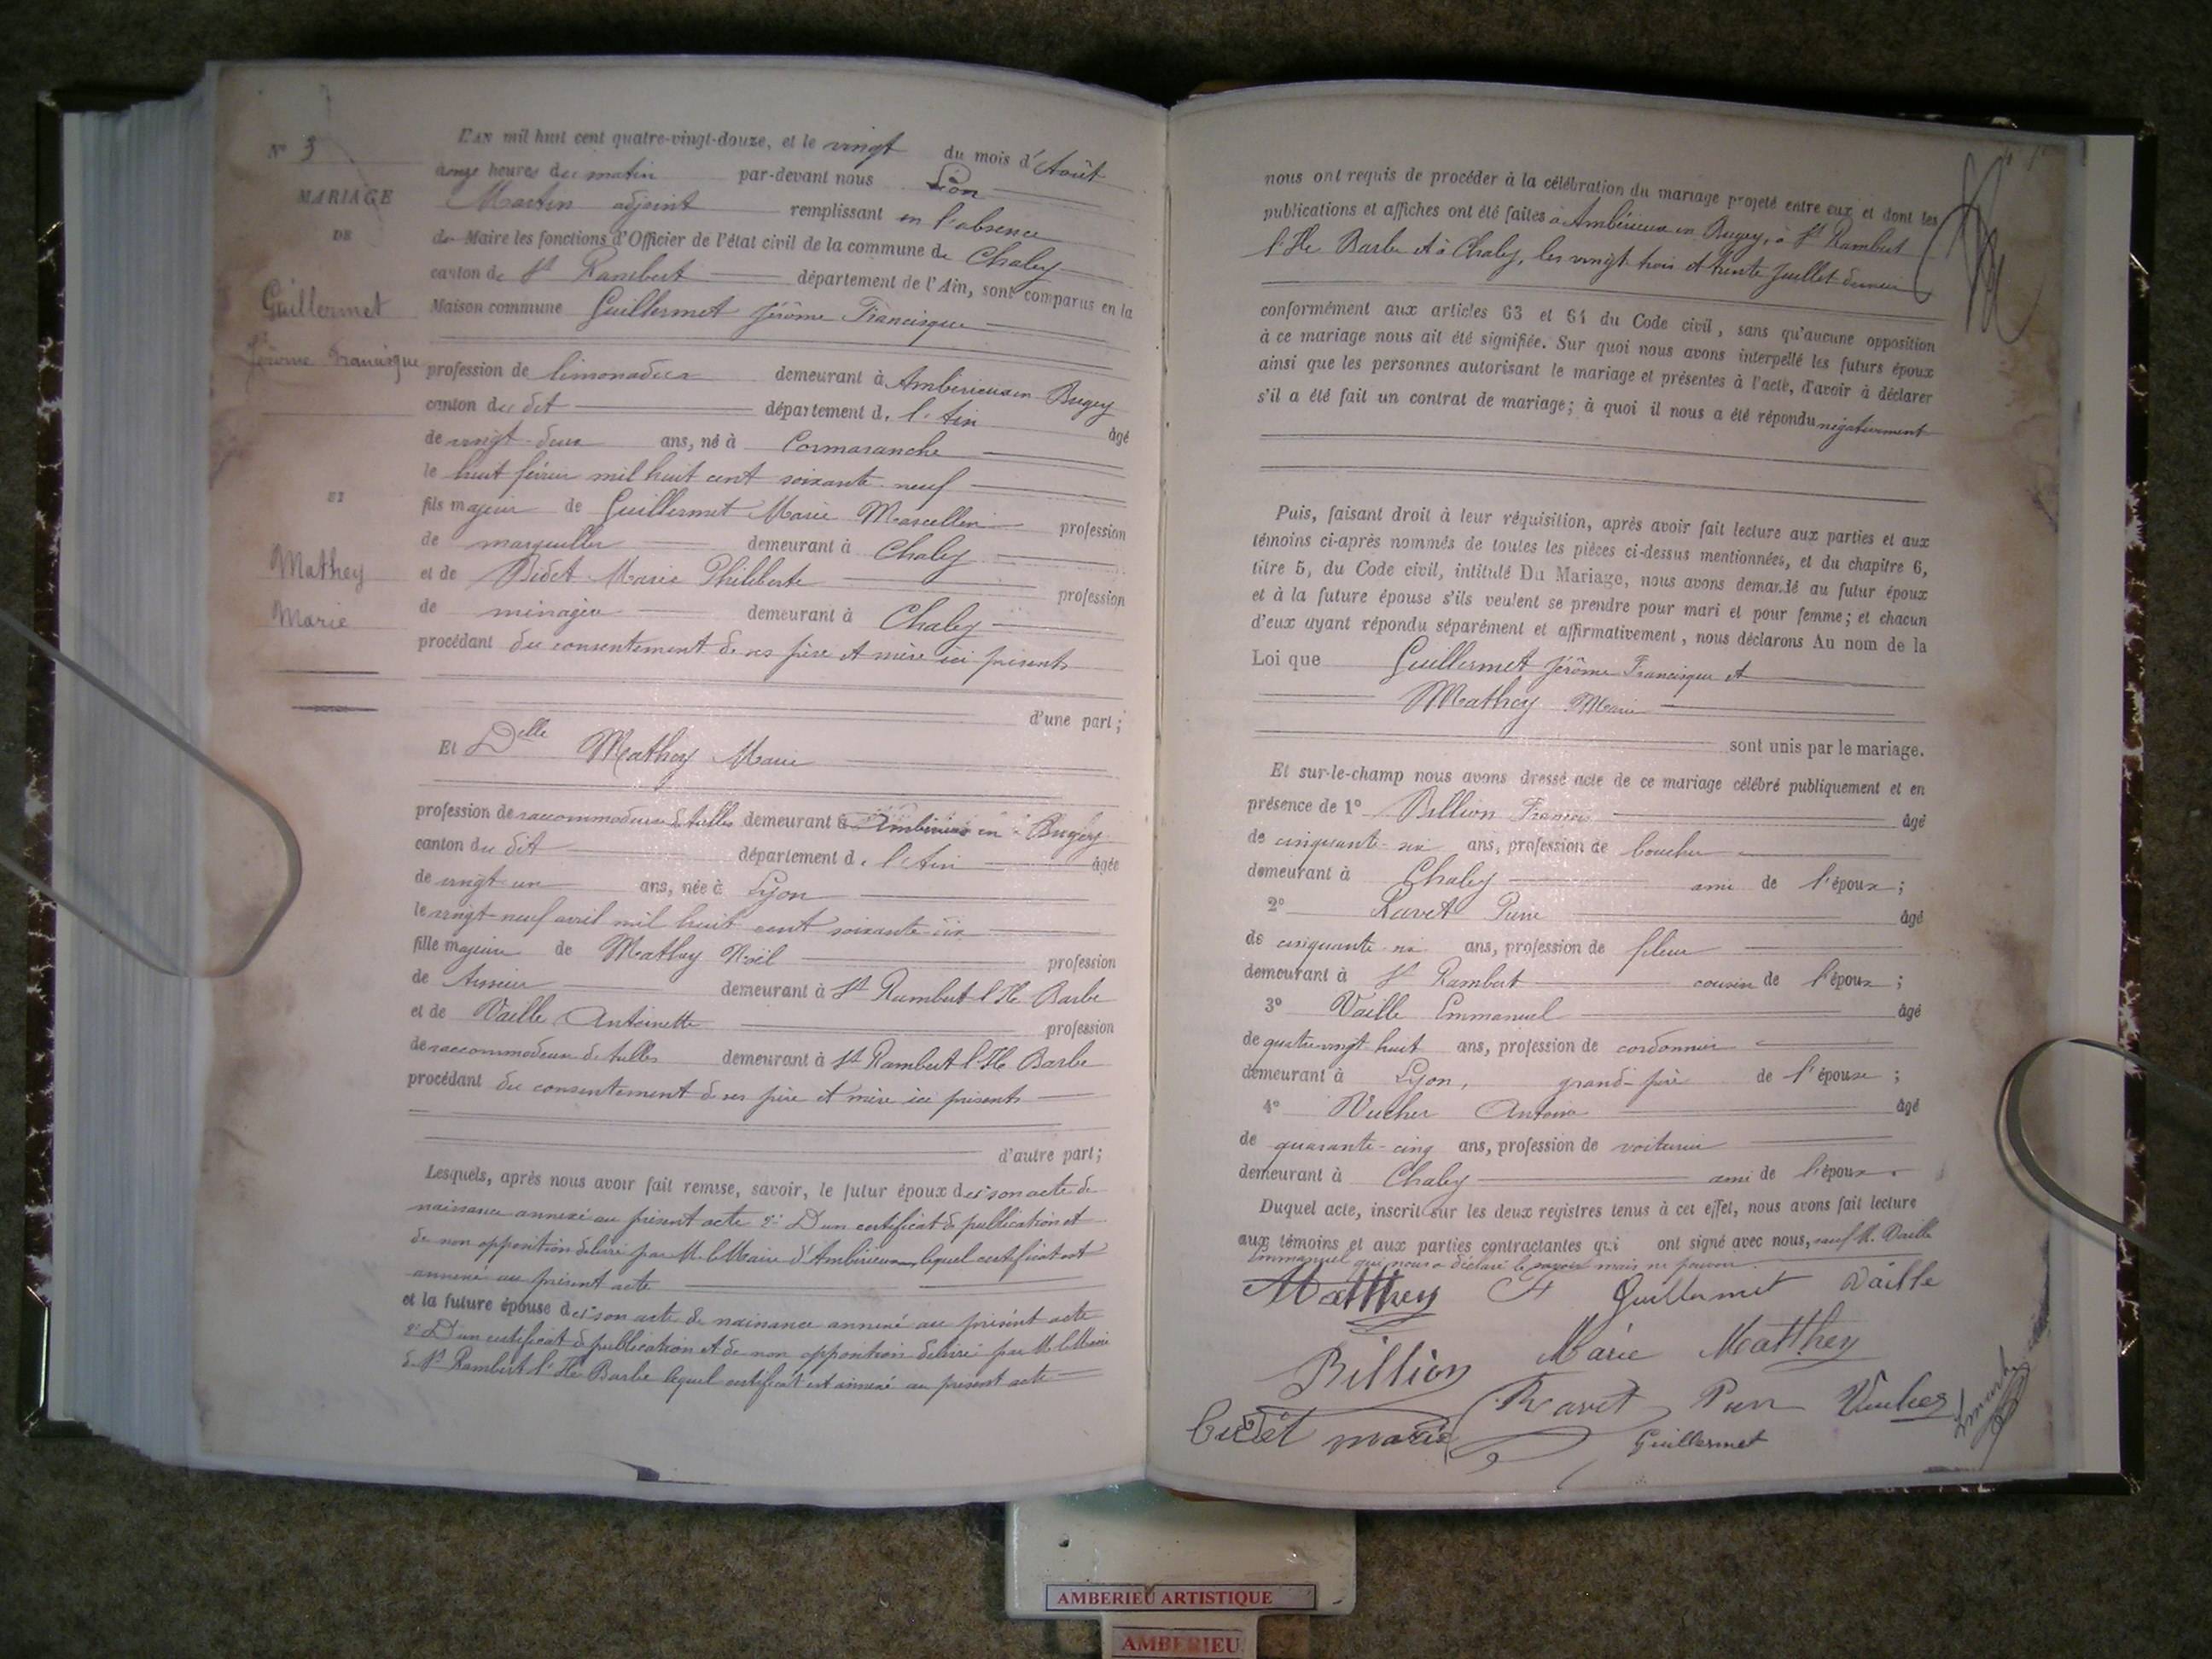 N° 3
MARIAGE
DE
Guillermet
Jérôme Francisque
ET
Mathey
Marie
L'AN mil huit cent quatre-vingt-douze, et le vingt du mois d'Août
onze heures du matin par-devant nous Léon
Martin adjoint remplissant en l'absence
de Maire les fonctions d'Officier de l'état civil de la commune de Chaley
canton de St Rambert département de l'Ain, sont comparus en la
Maison commune Guillermet Jérôme Francisque
profession de limonadier demeurant à Ambérieu en Bugey
canton du dit département d. l'Ain âgé
de vingt-deux ans, né à Cormaranche
le huit février mil huit cent soixante-neuf
fils majeur de Guillermet Marie Marcellin profession
de marguiller demeurant à Chaley
et de Bidet Marie Philiberte profession
de ménagère demeurant à Chaley
procédant du consentement de ses père et mère ici présents
d'une part;
Et Delle Mathey Marie
profession de raccommodeuse de tulles demeurant à Ambérieu en Bugey
canton du dit département d. l'Ain âgée
de vingt un ans, née à Lyon
le vingt-neuf avril mil huit cent soixante-dix
fille majeure de Mathey Noël profession
de tisseur demeurant à St Rambert l'Ile Barbe
et de Vaille Antoinette profession
de raccommodeuse de tulles demeurant à St Rambert l'Ile Barbe
procédant du consentement de ses père et mère ici présents
d'autre part;
Lesquels, après nous avoir fait remise, savoir, le futur époux de 1° son acte de
naissance annexé au présent acte 2° D'un certificat de publication et
de non opposition délivré par M. le Maire d'Ambérieu, lequel certificat est
annexé au présent acte
et la future épouse de 1° son acte de naissance annexé au présent acte
2° D'un certificat de publication et de non opposition délivré par M. le Maire
de St Rambert l'Ile Barbe lequel certificat est annexé au présent acte
nous ont requis de procéder à la célébration du mariage projeté entre eux et dont les
publications et affiches ont été faites à Ambérieu en Bugey, à St Rambert
l'Ile Barbe et à Chaley, les vingt trois et trente Juillet dernier
conformément aux articles 63 et 64 du Code civil, sans qu'aucune opposition
à ce mariage nous ait été signifiée. Sur quoi nous avons interpellé les futurs époux
ainsi que les personnes autorisant le mariage et présentes à l'acte, d'avoir à déclarer
s'il a été fait un contrat de mariage; à quoi il nous a été répondu négativement
Puis, faisant droit à leur réquisition, après avoir fait lecture aux parties et aux
témoins ci-après nommés de toutes les pièces ci-dessus mentionnées, et du chapitre 6,
titre 5, du Code civil, intitulé Du Mariage, nous avons demandé au futur époux
et à la future épouse s'ils veulent se prendre pour mari et pour femme; et chacun
d'eux ayant répondu séparément et affirmativement, nous déclarons Au nom de la
Loi que Guillermet Jérôme Francisque et
Mathey Marie
sont unis par le mariage.
Et sur-le-champ nous avons dressé acte de ce mariage célébré publiquement et en
présence de 1° Billion Francis âgé
de cinquante-six ans, profession de boucher
demeurant à Chaley ami de l'époux;
2° Ravet Pierre âgé
de cinquante six ans, profession de fileur
demeurant à St Rambert cousin de l'époux;
3° Vaille Emmanuel âgé
de quatre vingt huit ans, profession de cordonnier
demeurant à Lyon, grand-père de l'épouse;
4° Vucher Antoine âgé
de quarante-cinq ans, profession de voiturier
demeurant à Chaley ami de l'époux.
Duquel acte, inscrit sur les deux registres tenus à cet effet, nous avons fait lecture
aux témoins et aux parties contractantes qui ont signé avec nous, sauf M. Vaille
Emmanuel qui nous a déclaré le savoir mais ne pouvoir
Matthey F Guillermet Vaille
Billion Marie Matthey
Ravet Pierre Vucher
Bidet marie Guillermet
AMBERIEU ARTISTIQUE
AMBERIEU